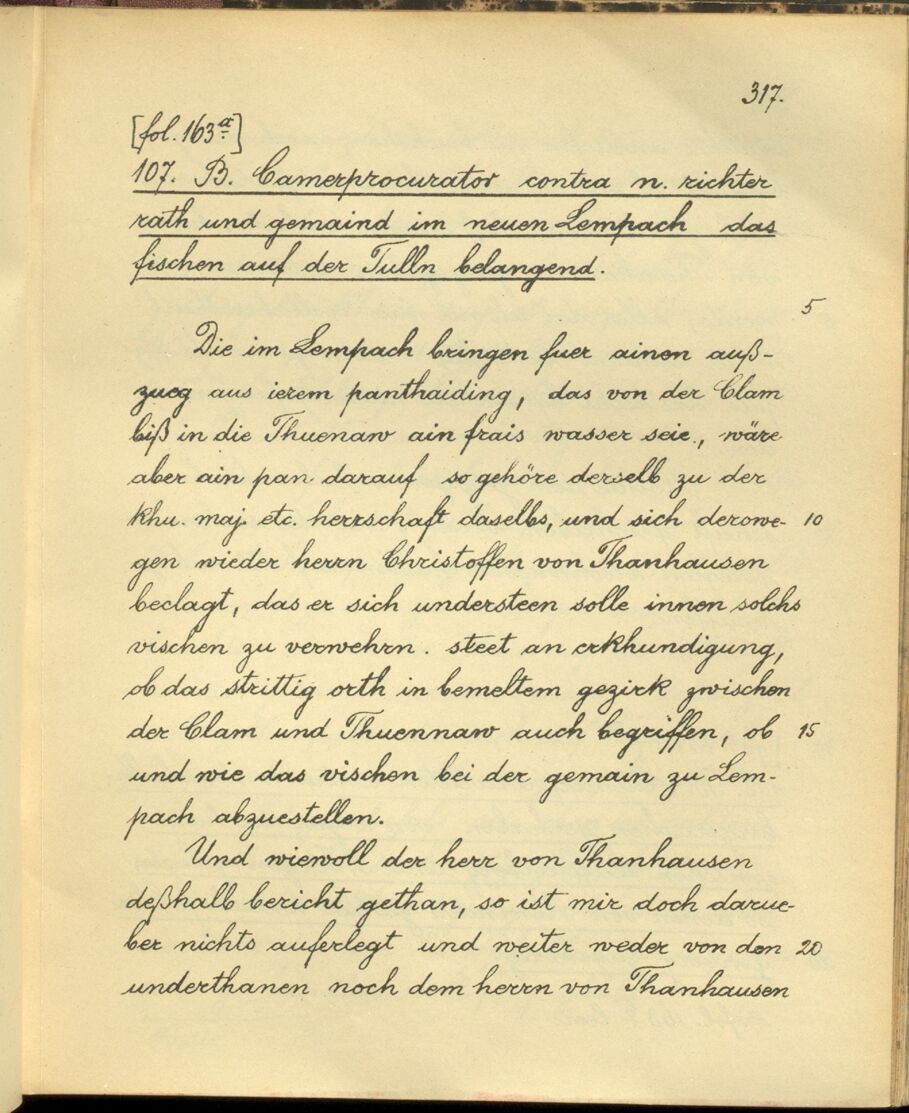 317.
[fol. 163a]
107. B. Camerprocurator contra n. richter
rath und gemaind im neuen Lempach das
fischen auf der Tulln belangend.
5
Die im Lempach bringen fuer ainen auß-
zueg aus ierem panthaiding, das von der Clam
biß in die Thuenaw ain frais wasser seie, wäre
aber ain pan darauf so gehöre derselb zu der
khu. maj. etc. herrschaft daselbs, und sich derowe- 10
gen wieder herrn Christoffen von Thanhausen
beclagt, das er sich understeen solle innen solchs
vischen zu verwehrn. steet an erkhundigung,
ob das strittig orth in bemeltem gezirk zwischen
der Clam und Thuennaw auch begriffen, ob 15
und wie das vischen bei der gemain zu Lem-
pach abzuestellen.
Und wiewoll der herr von Thanhausen
deßhalb bericht gethan, so ist mir doch darue-
ber nichts auferlegt und weiter weder von den 20
underthanen noch dem herrn von Thanhausen